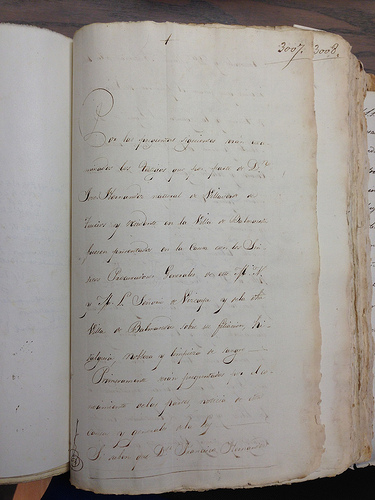 3007. 3008.
Por las preguntas siguientes sean exa-
minados los Testigos que por parte de Dn.
Juan Hernandez natural de Villaverde de
Trucios y residente en la Villa de Balmaseda
fueren presentados en la Causa con los Sin-
dicos Procuradores Generales de este M. N.
y M. L. Señorio de Vizcaya y de la
Villa de Balmaseda sobre su filiacion, hi-
dalguia nobleza y limpieza de sangre
Primeramente sean preguntados por el co-
nocimiento de las partes, noticia de esta
causa y generales de la Ley
Si saben que Dn. Francisco Hernandez